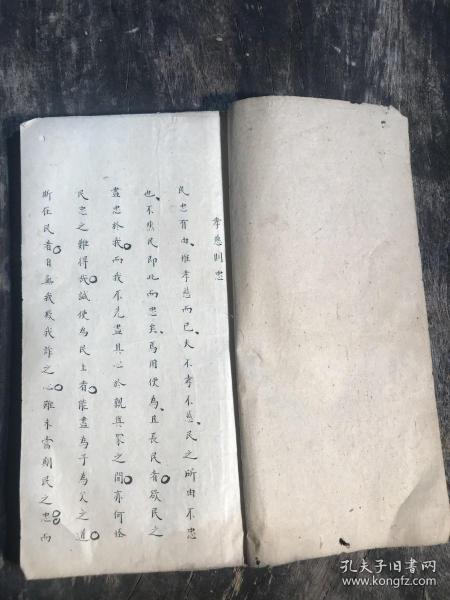 孝慈則忠
民忠有由、惟孝慈而已、夫不孝不慈、民之所由不忠
也、不焦民即此而忠矣、焉用使為、且長民者欲民之
盡忠於我而我不先盡其心於親與眾之間亦何怪
民忠之難得哉誠使為民上者能盡為子為父之道
斯在民者自無我欺我詐之心雖未嘗期民之忠而
孔夫子旧书网
www.kongfz.com